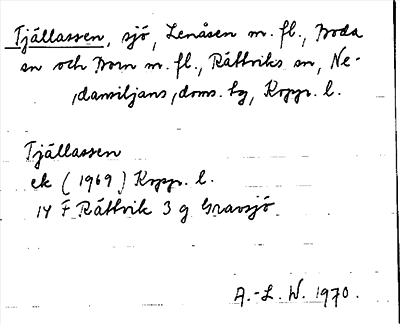 Tjällassen, sjö, Lenåsen m. fl., Boda
sn och Born m. fl., Rättviks sn, Ne-
dansiljans doms. hg, Kopp. l.
Tjällassen
ek (1969) Kopp. l.
14 F Rättvik 3 g Gravsjö
A.-L. W. 1970.